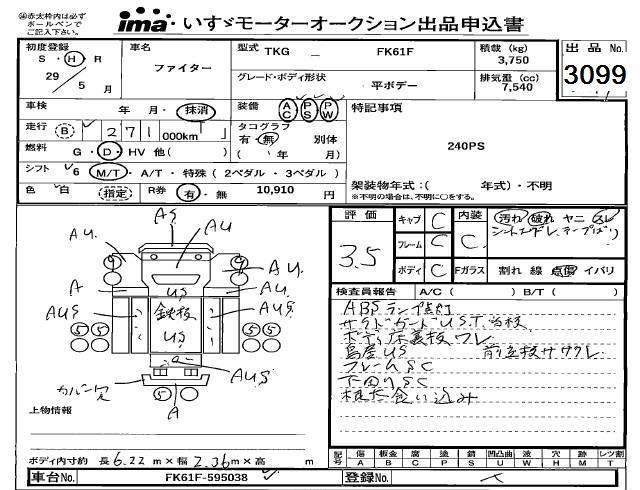 ㊟赤太枠内は必ず
ボールペンで
ご記入下さい。
ima いすゞモーターオークション出品申込書
初度登録
S・H・R
29年 5月
車名
ファイター
型式 TKG － FK61F
グレード・ボディ形状
平ボデー
積載 (kg)
3,750
排気量 (cc)
7,540
出品 No.
3099
車検 年 月・抹消
装備 AC PS PW
特記事項
走行 (B) 271,000km
タコグラフ
有・無 別体
( 年 月)
240PS
燃料 G・D・HV 他( )
シフト 6 M/T・A/T・特殊 ( 2ペダル・3ペダル )
色 白 (指定) R券 有・無 10,910 円
架装物年式:( 年式)・不明
※不明の場合は、不明に○をする。
評価
3.5
キャブ C
フレーム C
ボディ C
内装 C
Fガラス
汚れ 破れ ヤニ スレ
割れ 線 点傷 イバリ
検査員報告 A/C ( ) B/T ( )
ABSランプ点灯
サイドガードU.S.T.
ボディ床裏板ワレ
鳥居US
フレームSC
下回りSC
根太食い込み
AS
AU
AU.
AU
A
AU
AUS
AUS
US
鉄板
US
AUS
カバー欠
A
上物情報
ボディ内寸約 長 6.22 m×幅 2.36 m×高 m
車台No. FK61F-595038
登録No.
記号 傷 板金 腐 塗 錆 凹凸曲 波 穴 跡 レツ割
A B C P S U W H M T